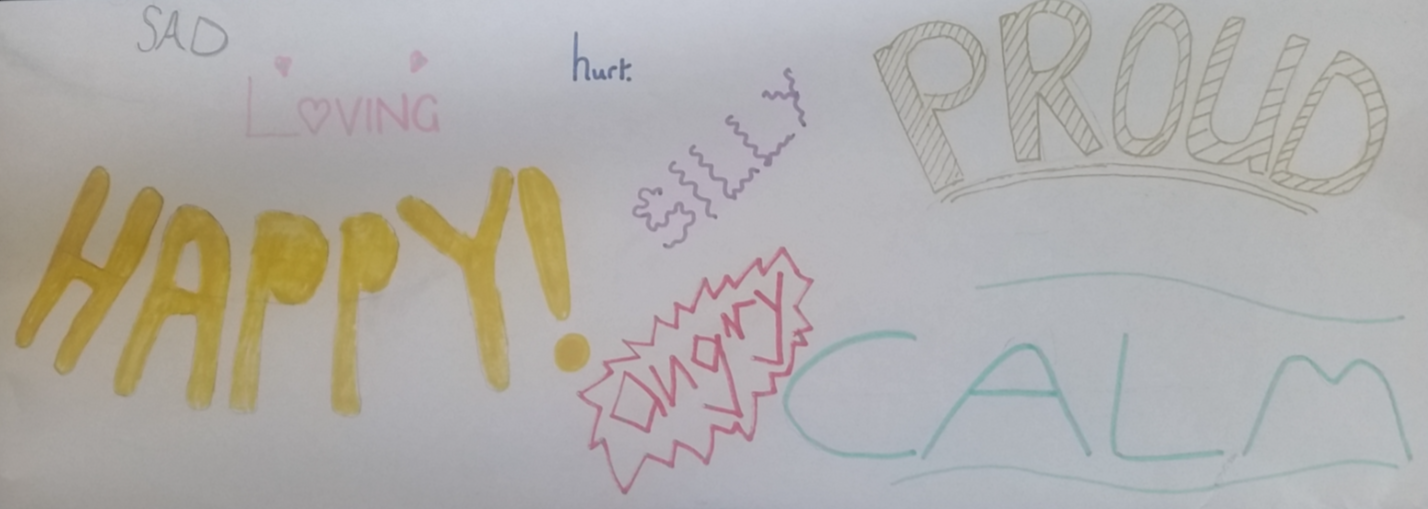 SAD
LOVING
hurt.
SILLY
PROUD
HAPPY!
angry
CALM